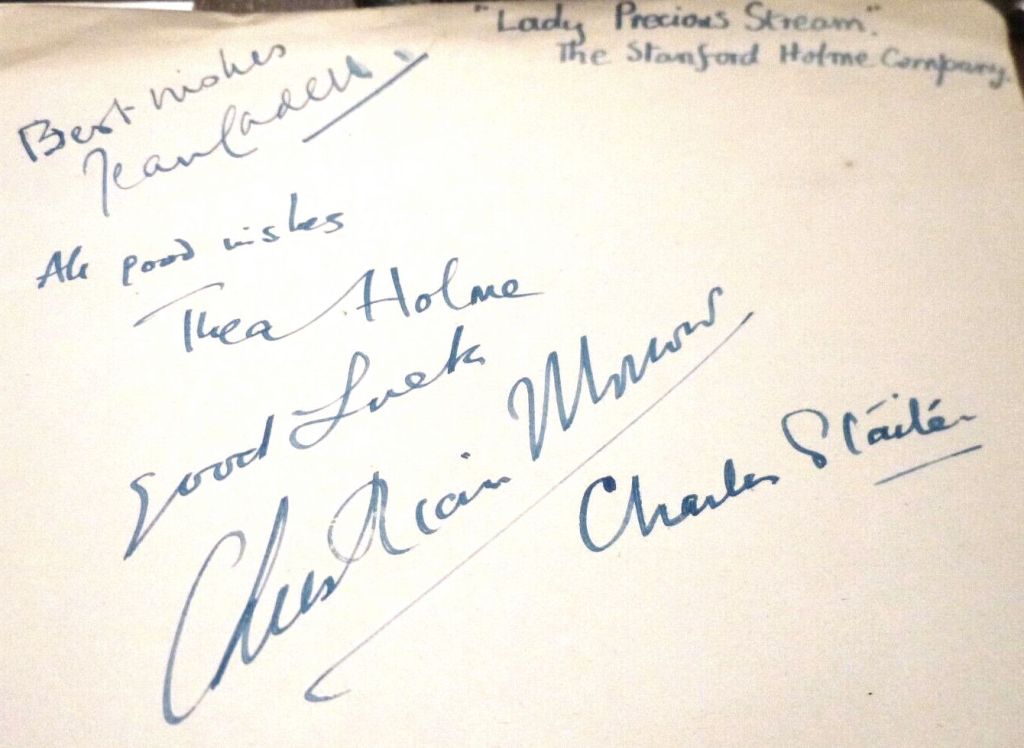 "Lady Precious Stream".
The Stanford Holme Company.
Best wishes
Jean Cadell.
All good wishes
Thea Holme
Good Luck
Christian Morrow
Charles